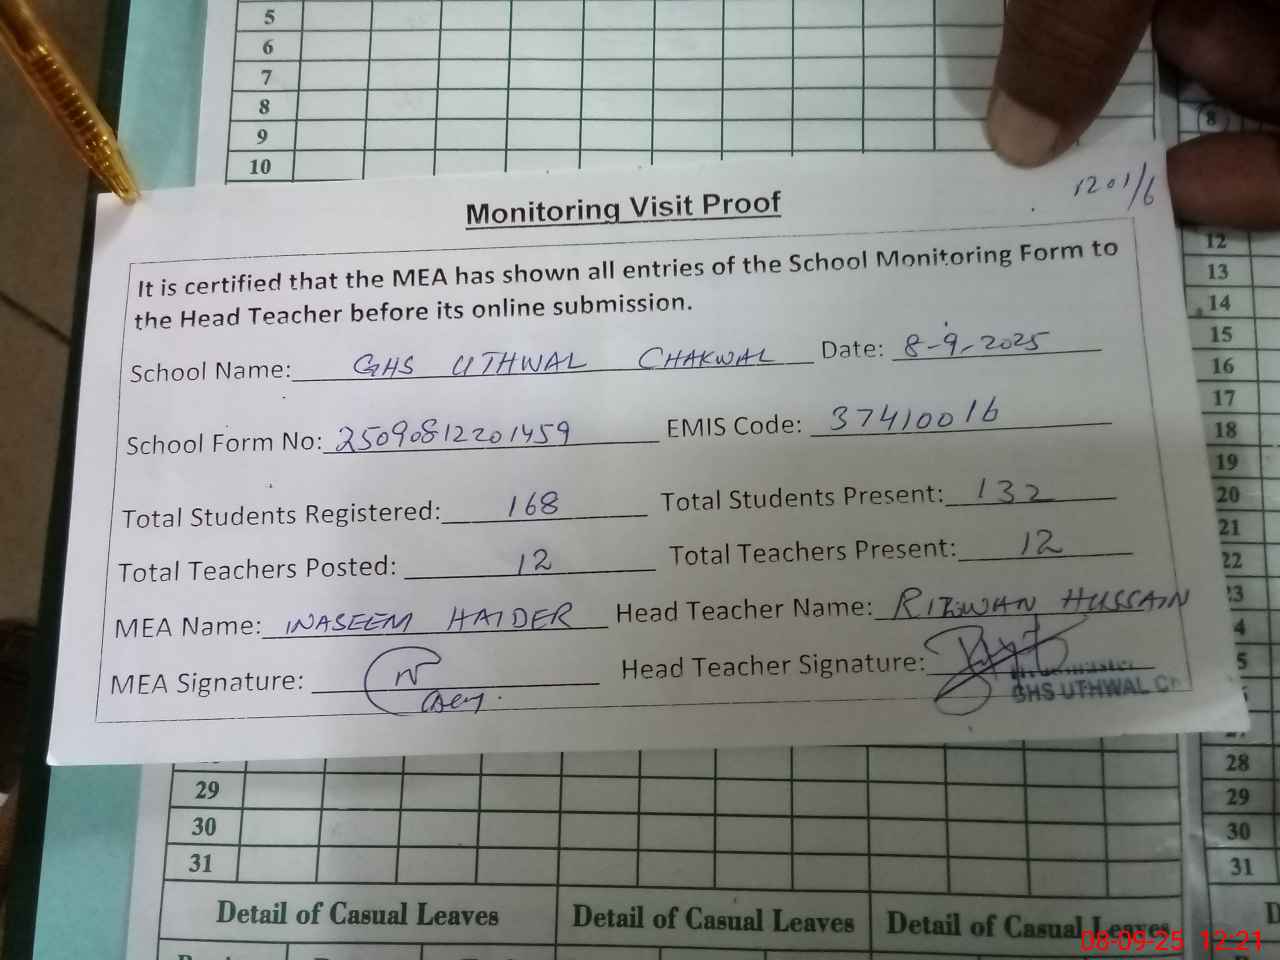 5
6
7
8
9
10
8
1201/6
Monitoring Visit Proof
It is certified that the MEA has shown all entries of the School Monitoring Form to
the Head Teacher before its online submission.
School Name: GHS UTHWAL CHAKWAL Date: 8-9-2025
School Form No: 25090812201459 EMIS Code: 37410016
Total Students Registered: 168 Total Students Present: 132
Total Teachers Posted: 12 Total Teachers Present: 12
MEA Name: WASEEM HAIDER Head Teacher Name: RIZWAN HUSSAIN
MEA Signature: Head Teacher Signature:
GHS UTHWAL
12
13
14
15
16
17
18
19
20
21
22
28
29
30
31
29
30
31
Detail of Casual Leaves Detail of Casual Leaves Detail of Casual Leaves
08-09-25 12:21